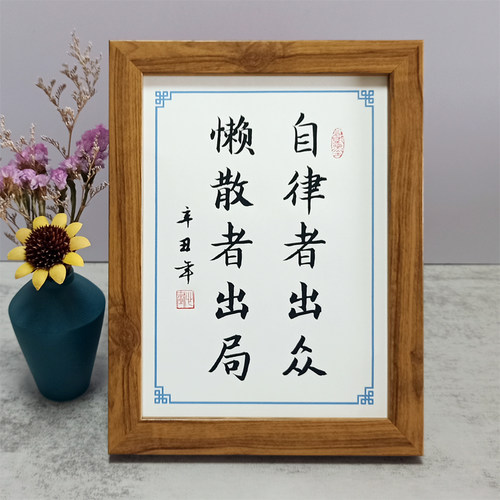 自律者出众
懒散者出局
辛丑年